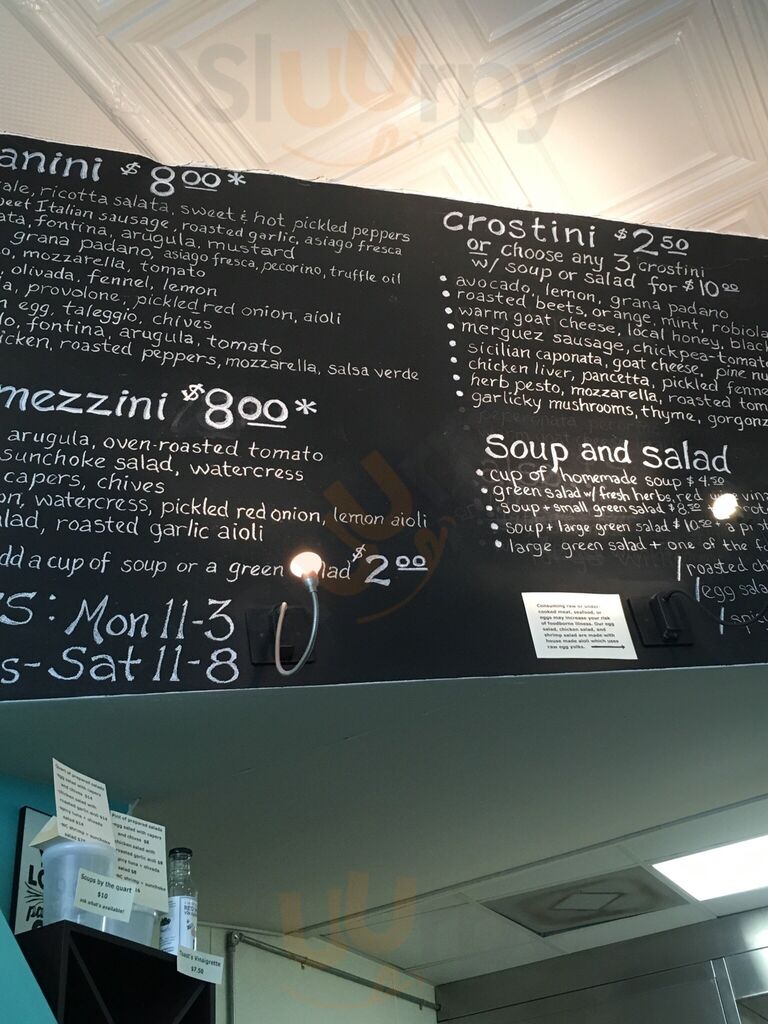 SluUrpy
anini $8.00*
ale, ricotta salata, sweet & hot pickled peppers
eet Italian sausage, roasted garlic, asiago fresca
ata, fontina, arugula, mustard
grana padano, asiago fresca, pecorino, truffle oil
o, mozzarella, tomato
olivada, fennel, lemon
a, provolone, pickled red onion, aioli
n egg, taleggio, chives
lo, fontina, arugula, tomato
icken, roasted peppers, mozzarella, salsa verde
mezzini $8.00*
arugula, oven-roasted tomato
sunchoke salad, watercress
capers, chives
on, watercress, pickled red onion, lemon aioli
alad, roasted garlic aioli
dd a cup of soup or a green lad $2.00
S: Mon 11-3
s-Sat 11-8
crostini $2.50
or choose any 3 crostini
w/ soup or salad for $10.00
• avocado, lemon, grana padano
• roasted beets, orange, mint, robiola
• warm goat cheese, local honey, black
• merguez sausage, chickpea-tomato
• sicilian caponata, goat cheese, pine nu
• chicken liver, pancetta, pickled fenne
• herb pesto, mozzarella, roasted tom
• garlicky mushrooms, thyme, gorgonz
soup and salad
• cup of homemade soup $4.50
• green salad w/ fresh herbs, red vina
• soup + small green salad $8.50
• soup + large green salad $10.50
• large green salad + one of the fo
roasted ch
egg sala
Consuming raw or under-
cooked meat, seafood, or
eggs may increase your risk
of foodborne illness. Our egg
salad, chicken salad, and
shrimp salad are made with
house made aioli which uses
raw egg yolks.
Quart of prepared salads
egg salad with capers
and chives $14
chicken salad with
roasted garlic aioli $14
spicy tuna + olivada
salad $14
Pint of prepared salads
egg salad with capers
and chives $8
chicken salad with
roasted garlic aioli $8
spicy tuna + olivada
salad $8
shrimp + sunchoke
Soups by the quart
$10
ask what's available!
Vinaigrette
$7.50